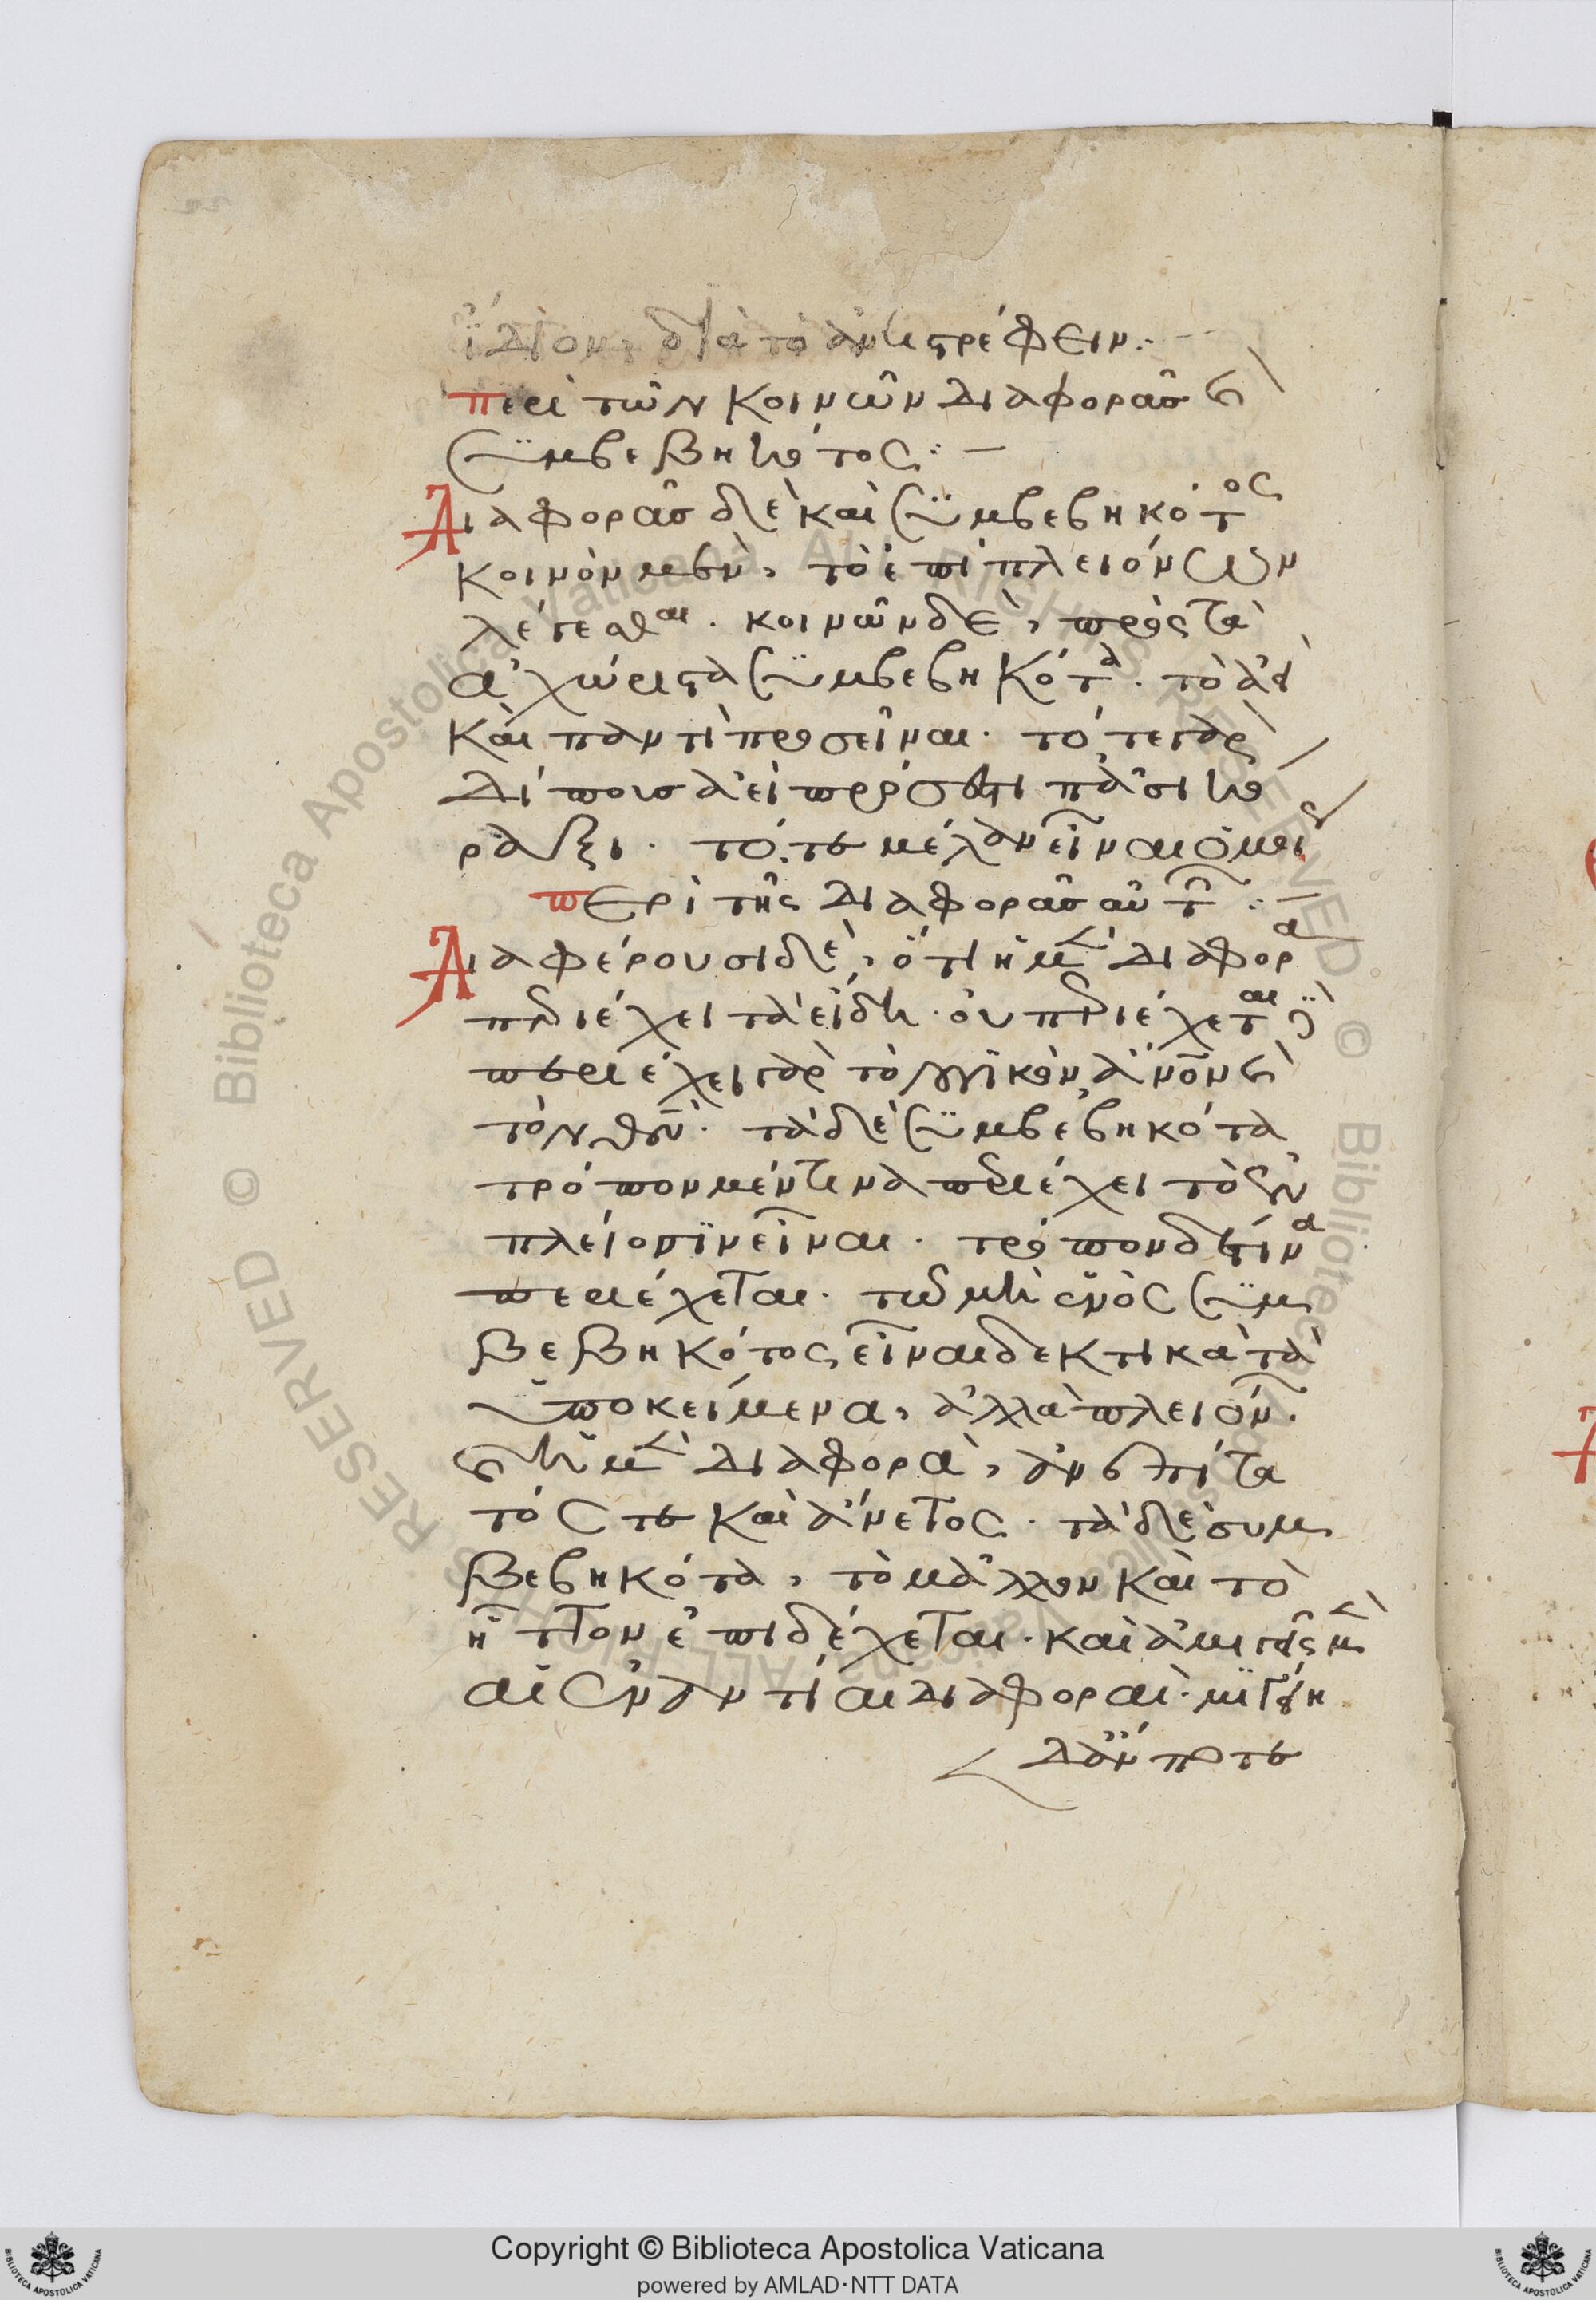 ἴδιον, διὰ τὸ ἀντιστρέφειν:-
περὶ τῶν κοινῶν διαφορᾶσ καὶ
συμβεβηκότος:-
Διαφορᾶσ δὲ καὶ συμβεβηκότος
κοινὸν μὲν, τὸ ἐπὶ πλειόνων
λέγεσθαι. κοινῶν δὲ, πρὸς τὰ
ἀχώριστα συμβεβηκότα. τὸ ἀεὶ
καὶ παντὶ προσεῖναι. τό τε γὰρ
δίπουσ ἀεὶ πρόσεστι πᾶσι κό
ραξι. τό τε μέλαν εἶναι ὁμοίως
περὶ τῆς διαφορᾶσ αὐτῶν:-
Διαφέρουσι δὲ, ὅτι ἡ μὲν διαφορὰ
περιέχει τὰ εἴδη. οὐ περιέχεται δὲ
περιέχει γὰρ τὸ λογικὸν ἄνον καὶ
τὸν θν. τὰ δὲ συμβεβηκότα
τρόπον μέν τινα περιέχει τὸ ἐν
πλείοσιν εἶναι. τρόπον δέ τινα
περιέχεται. τῶ μὴ ἑνὸς συμ
βεβηκότος εἶναι δεκτικὰ τὰ
ὑποκείμενα, ἀλλὰ πλειόνων.
καὶ ἡ μὲν διαφορὰ, ἀνεπίτα
τός τε καὶ ἄνετος. τὰ δὲ συμ
βεβηκότα, τὸ μᾶλλον καὶ τὸ
ἧττον ἐπιδέχεται. καὶ ἀμιγεῖς μὲν
αἱ ἐναντίαι διαφοραί. μιγείη
δἄν ποτε
Copyright © Biblioteca Apostolica Vaticana
powered by AMLAD·NTT DATA